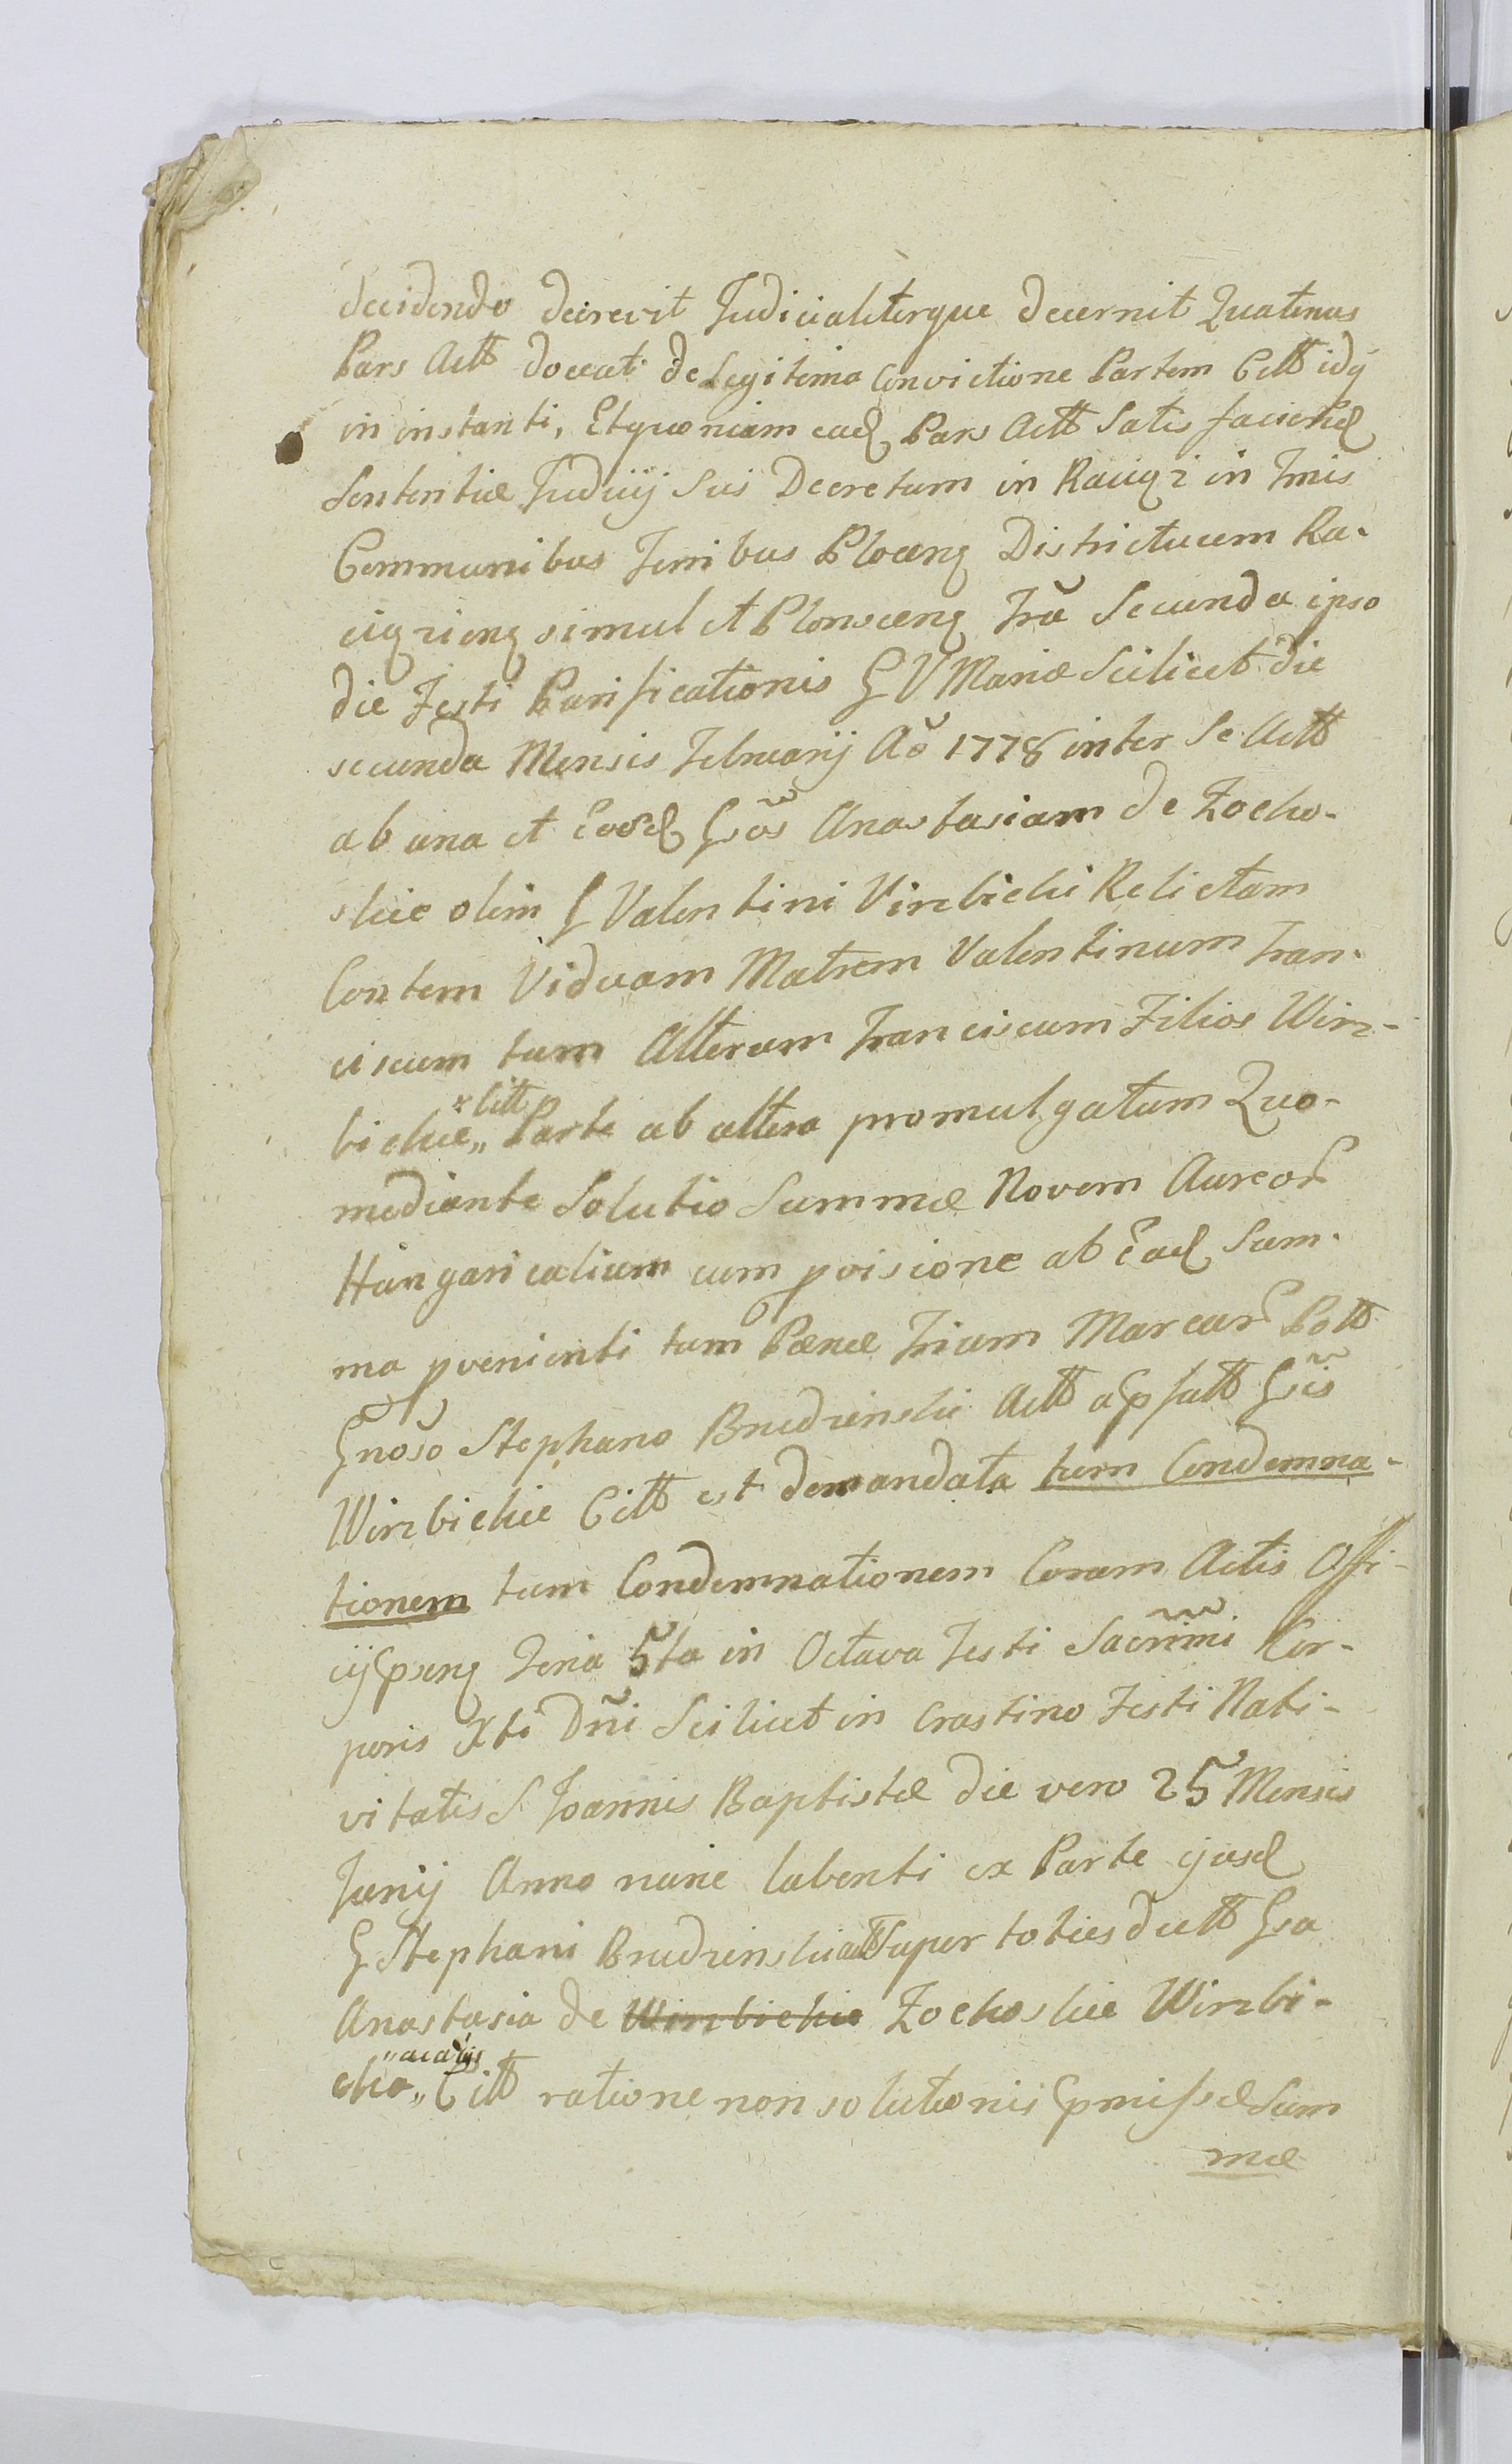 decidendo decrevit Judicialiterque decernit Quatenus
Pars Actt doceat de Legitima Convictione Partem Citt idq
in instanti, Et quoniam ead Pars Actt Satis faciend
Sententiæ Judicij Sui Decretum in Raciąż in Tmis
Communibus Terribus Plocens Districtucem Ra-
ciąziens simul et Plonscens Fria Secunda ipso
die Festi Purificationis G V Mariæ Scilicet die
secunda Mensis Februarij Aõ 1778 inter Se Actt
ab una et Eosd Gsõs Anastasiam de Zocho-
skie olim G Valentini Wirzbicki Relictam
Contem Viduam Matrem Valentinum Fran-
ciscum tum Alterum Franciscum Filios Wirz-
bickie „ Parte ab altera promulgatum Quo-
* Citt
mediante Solutio Summæ Novem Aureor
Hungaricalium cum pvisione ab Ead Sum-
ma pvenienti tum Pænæ Trium Marcar Pøtt
Gnõso Stephano Brudzinski Actt a psatt Gsis
Wirzbickie Citt est demandata tum Condemna-
tionem tum Condemnationem Coram Actis Offi-
cij psens Feria 5ta in Octava Festi Sacrmmi Cor-
poris Xti Dñi Scilicet in Crastino Festi Nati-
vitatis S Joannis Baptistæ die vero 25 Mensis
Junij Anno nunc labenti ex Parte ejusd
G Stephani Brudzinski Actt Super toties dictt Gsa
Anastasia de Wirzbickie Zochoskie Wirzbi-
cka „ Citt ratione non solutionis pmissæ Sum
mæ